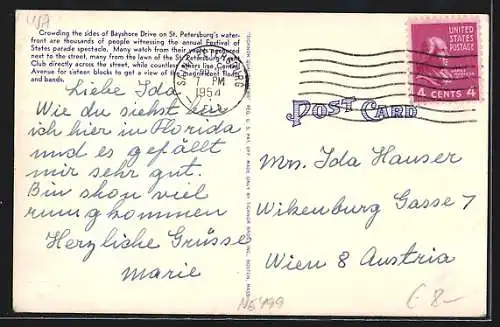 Crowding the sides of Bayshore Drive on St. Petersburg's water-
front are thousands of people witnessing the annual Festival of
States parade spectacle. Many watch from their yachts
next to the street, many from the lawn of the St. Petersburg
Club directly across the street, while countless others line Central
Avenue for sixteen blocks to get a view of the magnificent floats
and bands.
SAINT PETERSBURG
7 PM
1954
FLA.
UNITED
STATES
POSTAGE
4 CENTS 4
POST CARD
Liebe Ida
Wie du siehst bin
ich hier in Florida
und es gefällt
mir sehr gut.
Bin shon viel
rumgkommen
Herzliche Grüsse
Marie
Mrs. Ida Hauser
Wikenburg Gasse 7
Wien 8 Austria
N6499
8-